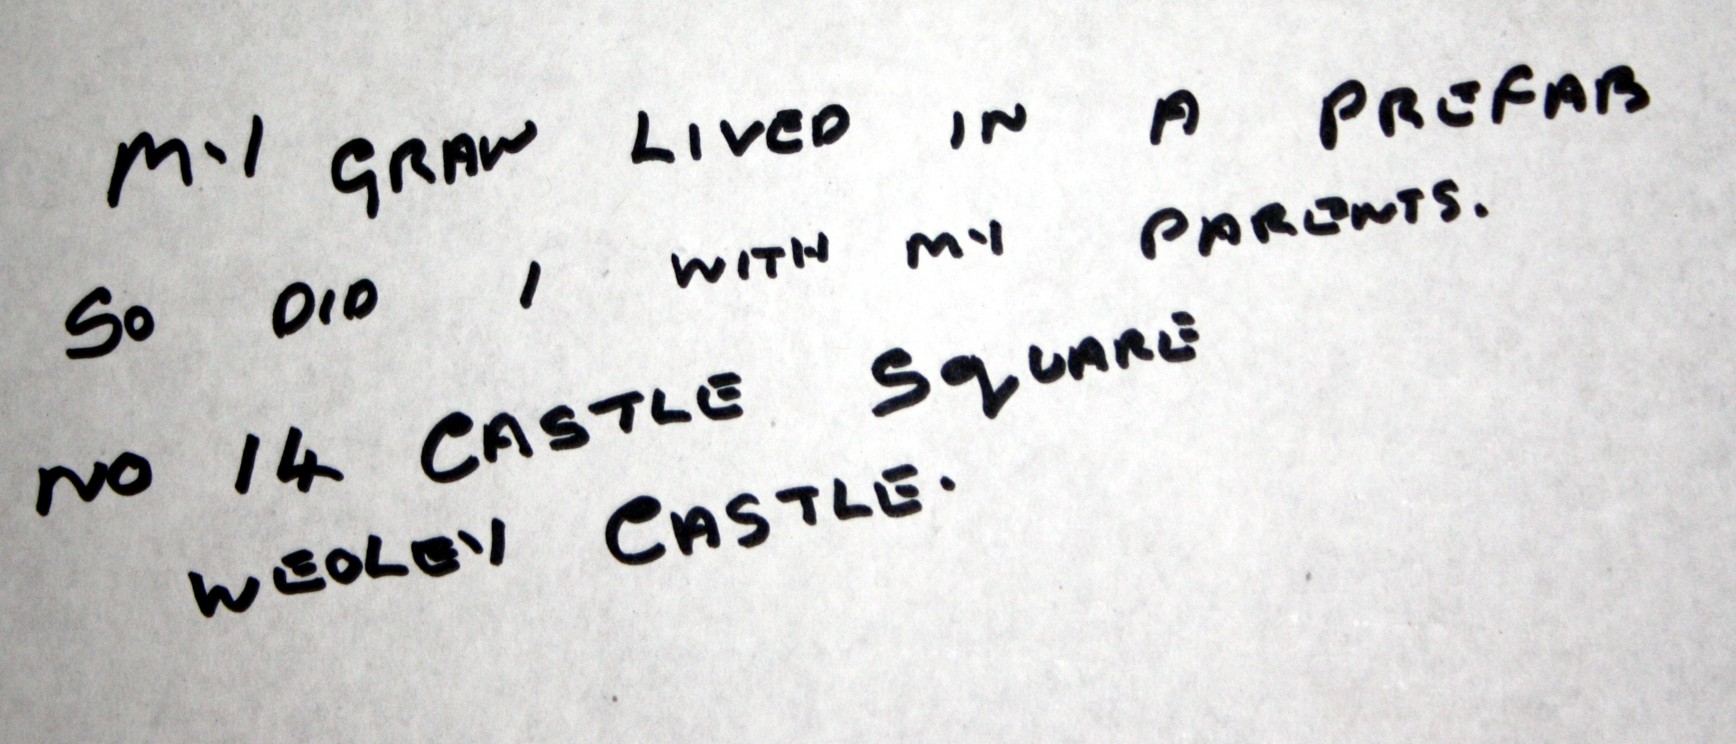 MY GRAN LIVED IN A PREFAB
SO DID I WITH MY PARENTS.
NO 14 CASTLE SQUARE
WEOLEY CASTLE.